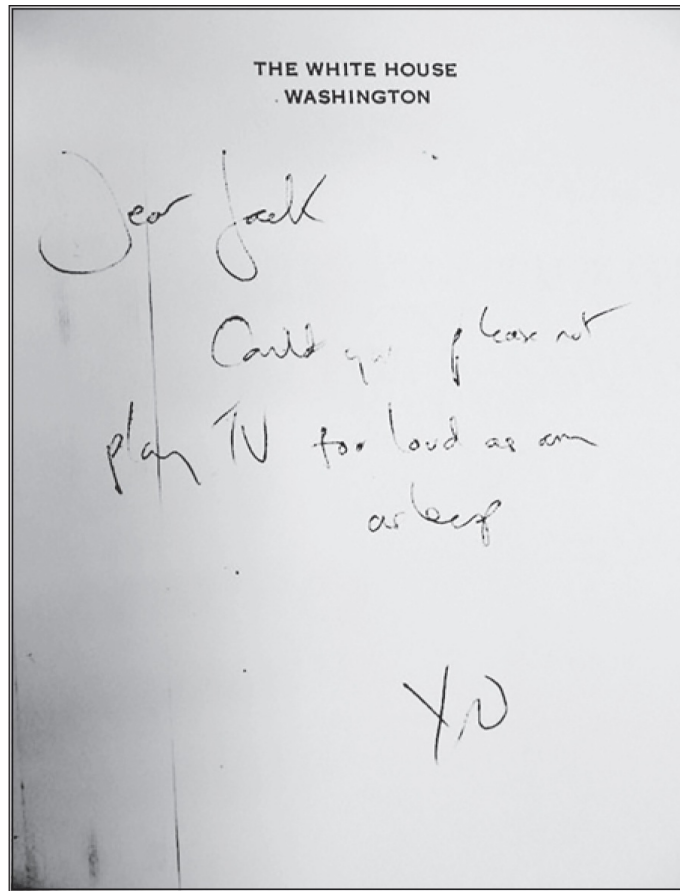 THE WHITE HOUSE
WASHINGTON
Dear Jack
Could you please not
play TV too loud as am
asleep
XO